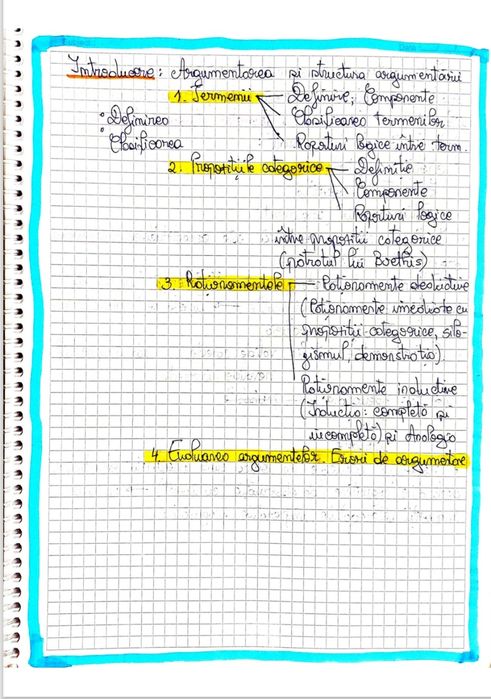 Introducere: Argumentarea și structura argumentării
1. Termenii — Definire; Componente
• Definirea
Clasificarea termenilor
• Clasificarea
Raporturi logice între term.
2. Propozițiile categorice — Definiție
Componente
Raporturi logice
între propoziții categorice
(pătratul lui Boethis)
3. Raționamentele — Raționamente deductive
(Raționamente imediate cu
propoziții categorice, silo-
gismul, demonstrația).
Raționamente inductive
(Inducția: completă și
incompletă) și Analogia
4. Evaluarea argumentelor. Erori de argumentare